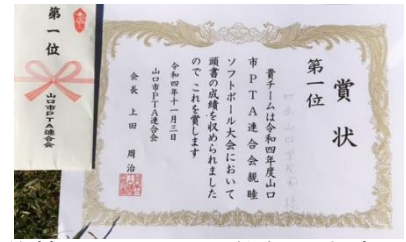 賞状
第一位
貴チームは令和四年度山口
市PTA連合会親睦
ソフトボール大会において
頭書の成績を収められました
ので これを賞します
令和四年十一月三日
山口市PTA連合会
会長 上田 周治
第一位
山口市PTA連合会